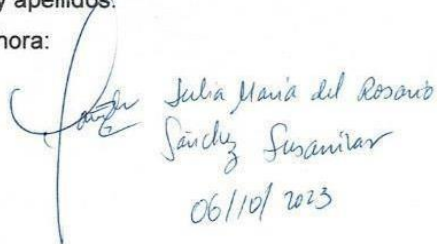 y apellidos:
hora:
Julia María del Rosario
Sánchez Susanibar
06/10/2023